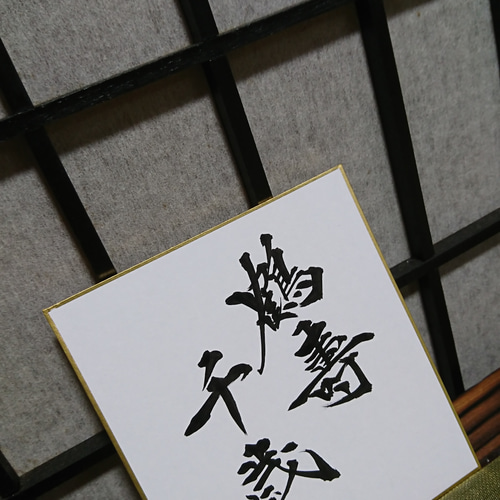 鶴寿
千歳